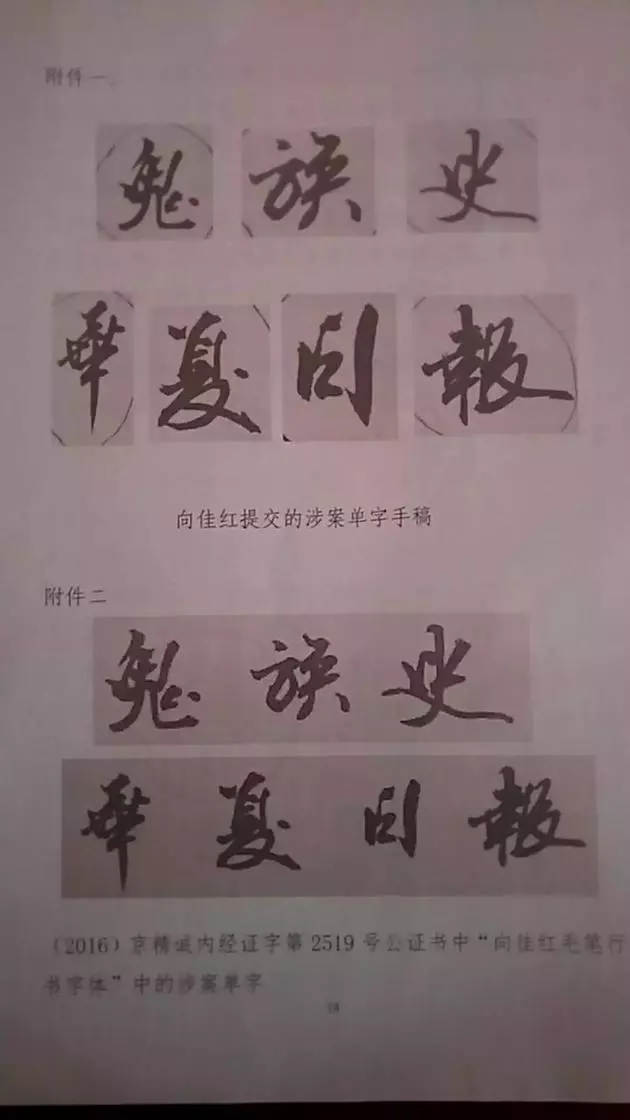 附件一
鬼 族 史
華 夏 日 報
向佳红提交的涉案单字手稿
附件二
鬼 族 史
華 夏 日 報
（2016）京精诚内经证字第 2519 号公证书中“向佳红毛笔行
书字体”中的涉案单字